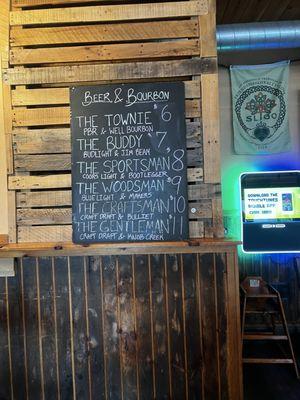 BEER & BOURBON
$
THE TOWNIE 6
PBR & WELL BOURBON
THE BUDDY 7
BUDLIGHT & JIM BEAM
THE SPORTSMAN 8
COORS LIGHT & BOOTLEGGER
THE WOODSMAN $9
BLUELIGHT & MAKERS
THE CRAFTSMAN $10
CRAFT DRAFT & BULLIET
THE GENTLEMAN $11
CRAFT DRAFT & KNOB CREEK
SLIGO
DOWNLOAD THE
TOUCHTUNES
MOBILE APP